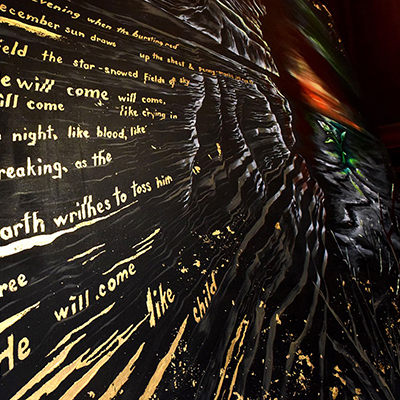 evening when the bursting red
ecember sun draws up the sheet &
ield the star-snowed fields of sky
e will come will come,
ill come like crying in
night, like blood, like
reaking, as the
arth writhes to toss him
ree
He will come like child